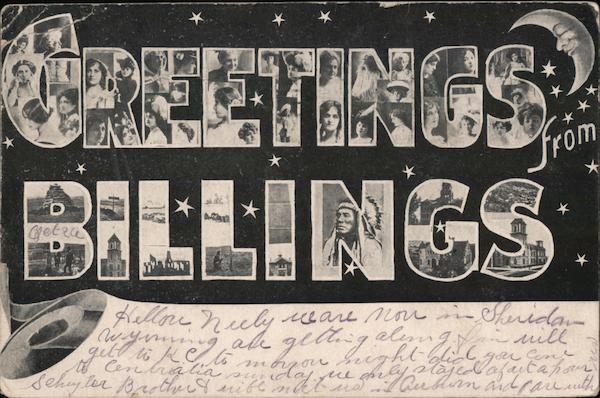 GREETINGS
from
BILLINGS
Hellow Neely we are now in Sheridan
wyoming are getting along fine will
get to KC to morrow night did you come
to Centralia sunday we only stayed about a hour
Schuyler Brother & will meet us in Auburn and